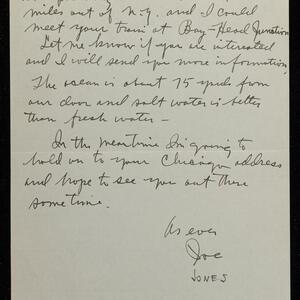 miles out of N.Y. and I could
meet your train at Bay-Head Junction
Let me know if you are interested
and I will send you more information,
The ocean is about 75 yards from
our door and salt water is better
than fresh water —
In the meantime I'm going to
hold on to your Chicago address
and hope to see you out there
sometime.
As ever
Joe
JONES